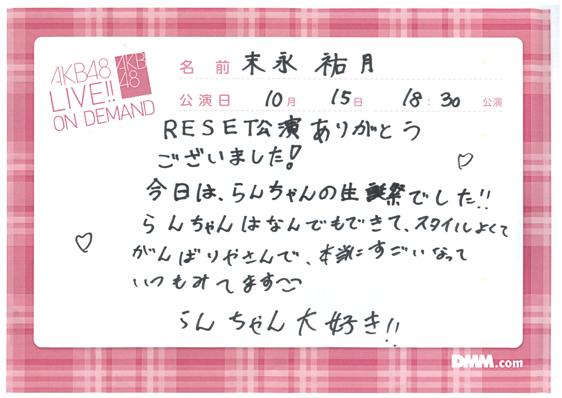 AKB48
LIVE!!
ON DEMAND
AKB
48
名前 末永 祐月
公演日 10月 15日 18:30 公演
RESET公演ありがとう
ございました!
今日は、らんちゃんの生誕祭でした!!
らんちゃんはなんでもできて、スタイルよくて
がんばりやさんで、本当にすごいなって
いつもみてます
らんちゃん大好き!!
DMM.com